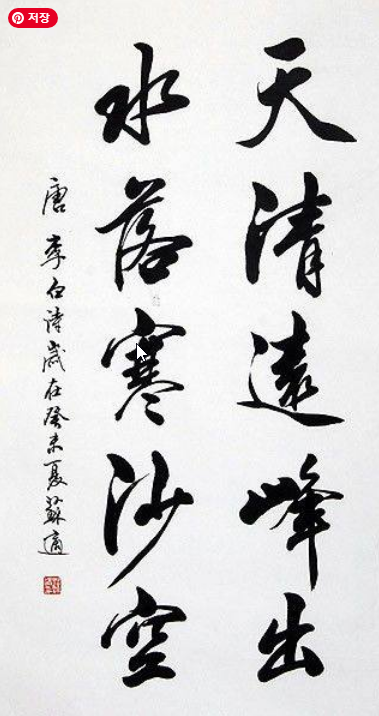 저장
天清遠峰出
水落寒沙空
唐 李白詩 歲在癸未夏 蘇適